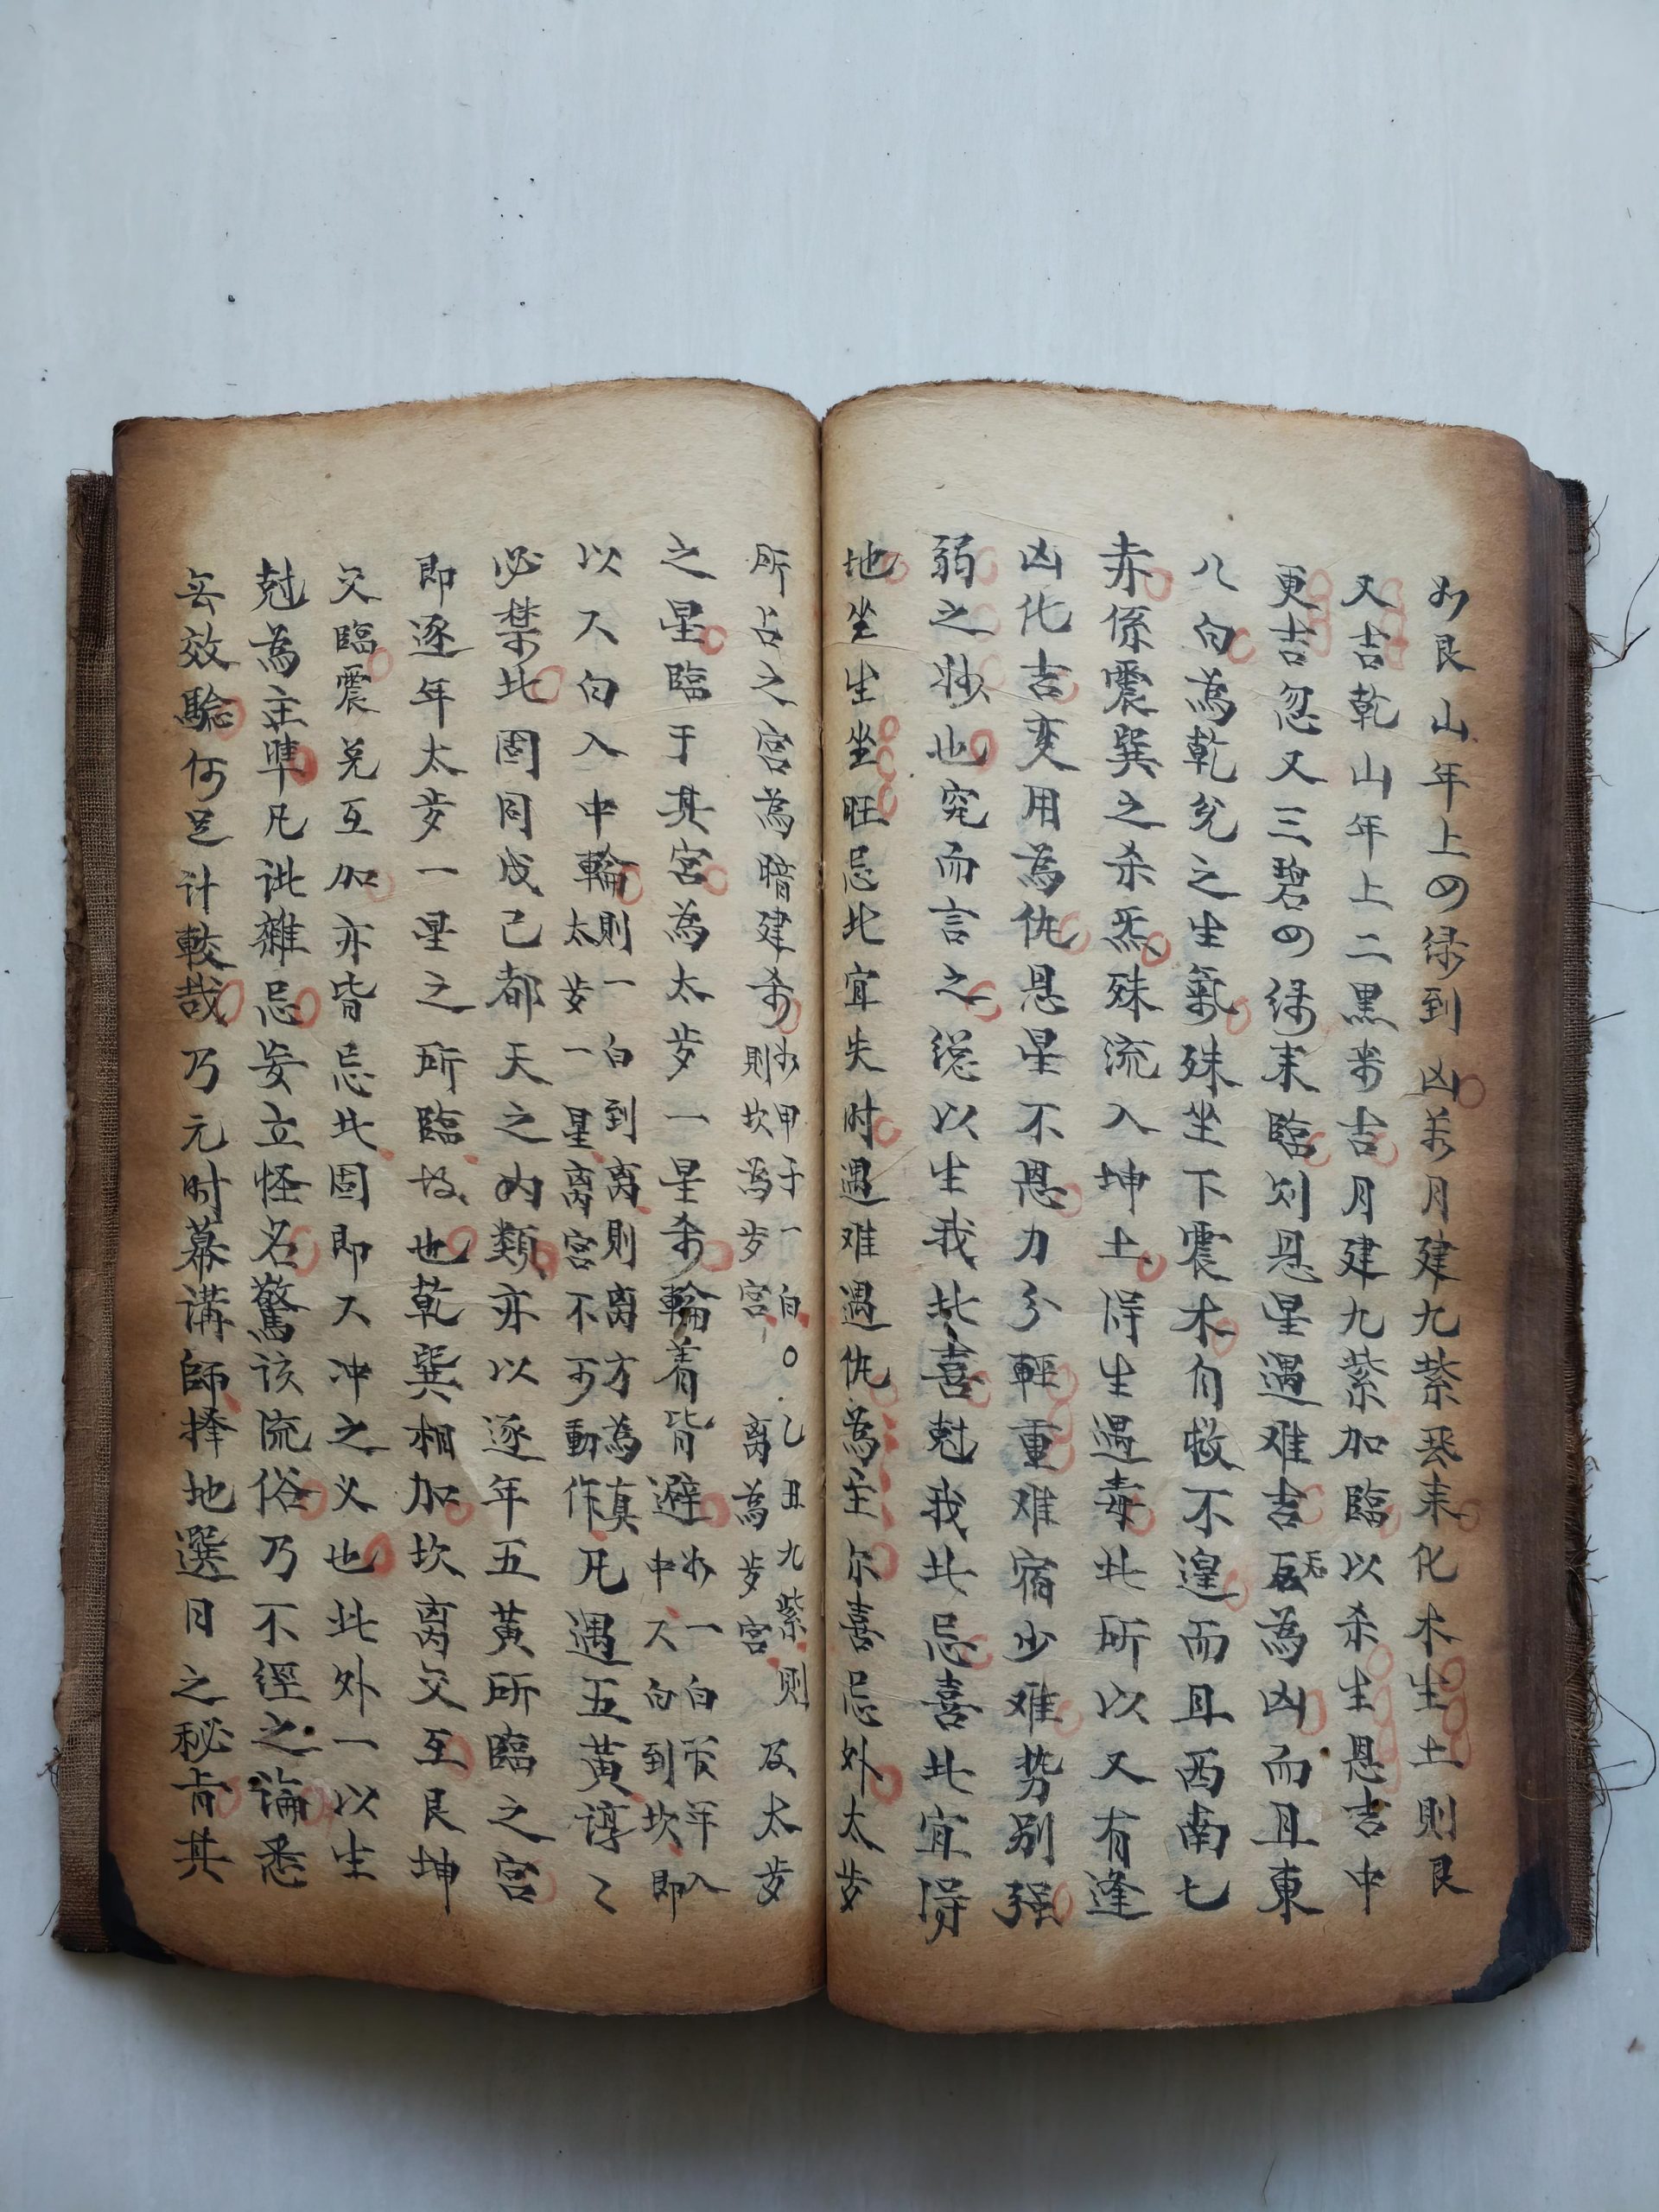 如艮山年上四绿到凶矣月建九紫丙来化木生土則艮
又吉乾山年上二黑来吉月建九紫加臨以杀生恩吉中
更吉忽又三碧四绿来臨则恩星遇难吉反為凶而且東
八白為乾兌之生氣殊坐下震木自救不遑而且西南七
赤係震巽之杀炁殊流入坤土得生遇毒此所以又有逢
凶化吉変用為仇恩星不恩力分輕重难宿少难势别强
弱之妙也究而言之総以生我此喜尅我此忌喜此宜得
地坐生坐旺忌此宜失时遇难遇仇為主尔喜忌外太岁
所占之宮為暗建杀如甲子一白〇乙丑九紫則及太岁
則坎為岁宮离為岁宮
之星臨于其宮為太岁一星杀輪着皆避如一白管年入
中又白到坎即
以又白入中輪則一白到离則离方為真
太岁一星离宮不可動作凡遇五黃諄〻
必禁此固同戊己都天之内類亦以逐年五黃所臨之宮
即逐年太岁一星之所臨故也乾巽相加坎离交互艮坤
交臨震兌互加亦皆忌此固即又冲之义也此外一以生
尅為主凖凡訛雜忌妄立怪名驚该流俗乃不經之論悉
無效驗何足计較哉乃元时幕講師擇地選日之秘旨其